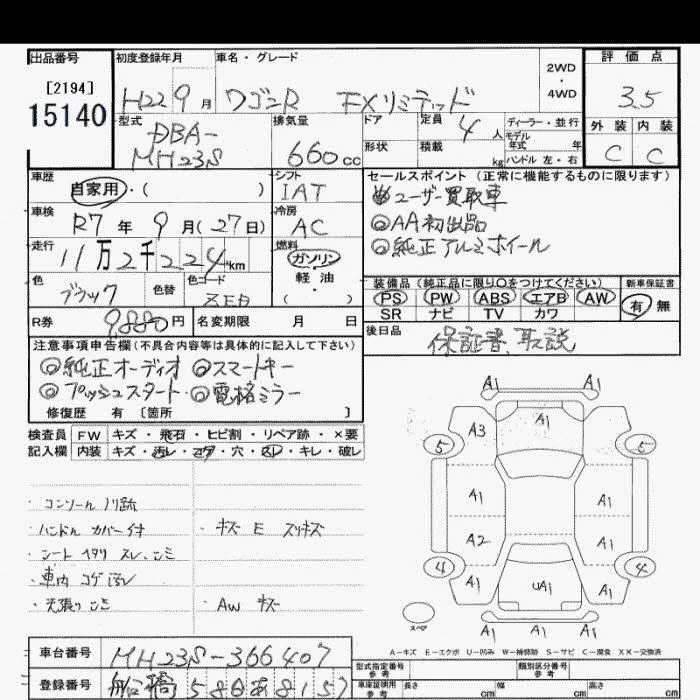 出品番号 初度登録年月 車名・グレード 2WD・4WD 評価点
[2194]
15140
H22 9月 ワゴンR FXリミテッド 3.5
型式 排気量 ドア 定員 4人 ディーラー・並行 外装 内装
DBA-
MH23S 660cc 形状 積載 kg モデル年式 年 ハンドル 左・右 C C
車歴 シフト セールスポイント(正常に機能するものに限ります)
自家用・( ) IAT ◎ユーザー買取車
車検 冷房 ◎AA初出品
R7年 9月(27日) AC ◎純正アルミホイール
走行 燃料
11万2千224km ガソリン・軽油・( )
色 色替 色コード 装備品(純正品に限り○をつけてください) 新車保証書
ブラック PS PW ABS エアB AW 有 無
SR ナビ TV カワ
R券 9880円 名変期限 月 日 後日品
保証書、取説
注意事項申告欄(不具合内容等は具体的に記入して下さい)
◎純正オーディオ ◎スマートキー
◎プッシュスタート ◎電格ミラー
修復歴 有 [箇所 ]
検査員 FW キズ・飛石・ヒビ割・リペア跡・×要
記入欄 内装 キズ・汚レ・コゲ・穴・スレ・キレ・破レ
・コンソール ノリ跡
・ハンドル カバー付 ・キズ E スリキズ
・シート ヘタリ スレ、シミ
・車内 コゲ 汚レ
・天張り シミ ・AW キズ
A1 A1
A3 A1
5 5
A1 A1
A2 A1
4 4
A1 UA1 A1
スペア A1 A1 A1
A-キズ E-エクボ U-凹み W-補修跡 S-サビ C-腐食 XX-交換済
車台番号 MH23S-366407 型式指定番号 参考 類別区分番号 参考
登録番号 船橋 580 あ 8157 車庫証明用 参考 長さ cm 幅 cm 高さ cm